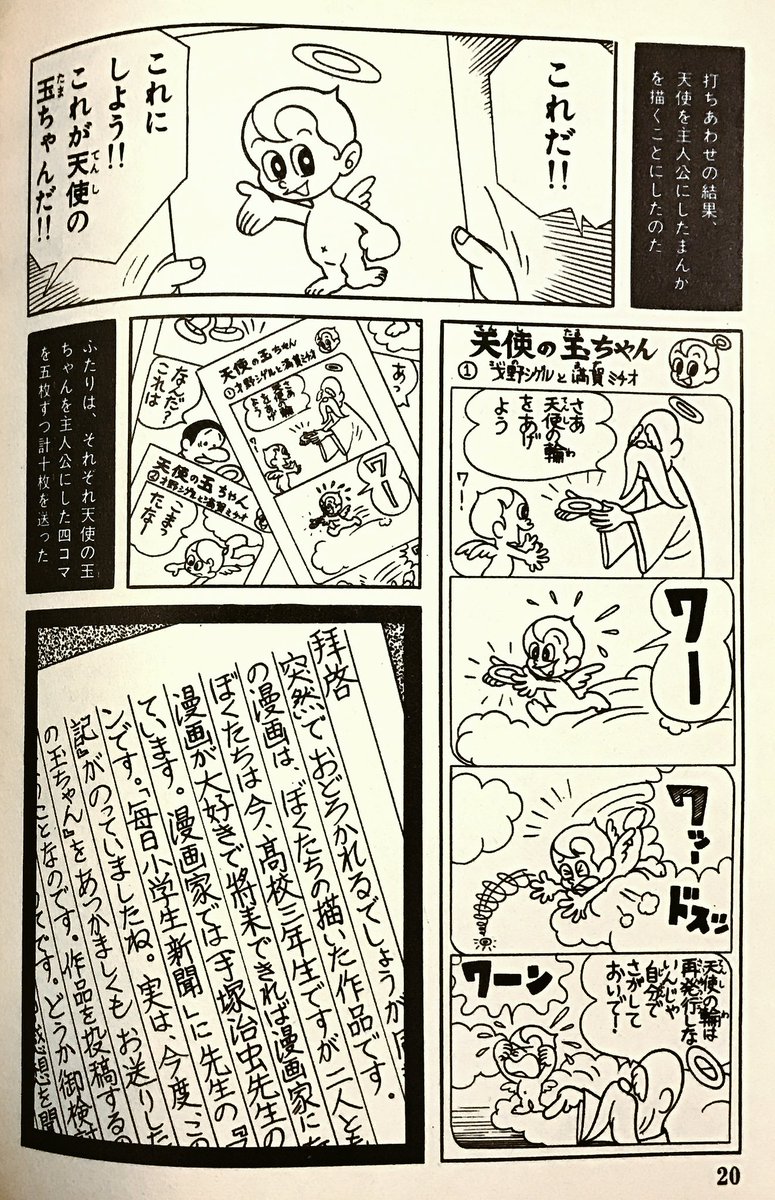 打ちあわせの結果、
天使を主人公にしたまんが
を描くことにしたのた
これだ!!
これに
しよう!!
これが天使の
玉ちゃんだ!!
天使の玉ちゃん
① 我野シゲルと満賀ミチオ
さあ
天使の輪
をあげ
よう
ワー
ワー
ワッー
ドスッ
天使の輪は
再発行しな
いんじゃ
自分で
さがして
おいで!
ワーン
あっ
天使の玉ちゃん
①我野シゲルと満賀ミチオ
さあ
天使の輪
をあげ
よう
ワー
なんだ?
これは
天使の玉ちゃん
こまっ
たなー
ふたりは、それぞれ天使の玉
ちゃんを主人公にした四コマ
を五枚ずつ計十枚を送った
拝啓
突然で おどろかれるでしょうが 同
の漫画は、ぼくたちの描いた作品です。
ぼくたちは今、高校三年生ですが 二人とも
漫画が大好きで将来できれば漫画家にな
ています。漫画家では「手塚治虫先生の
ンです。「毎日小学生新聞」に先生の『
記』がのっていましたね。実は、今度、この
の玉ちゃん』をあつかましくも お送りした
ことなのです。作品を投稿するの
てです。どうか御検討
感想を聞
20